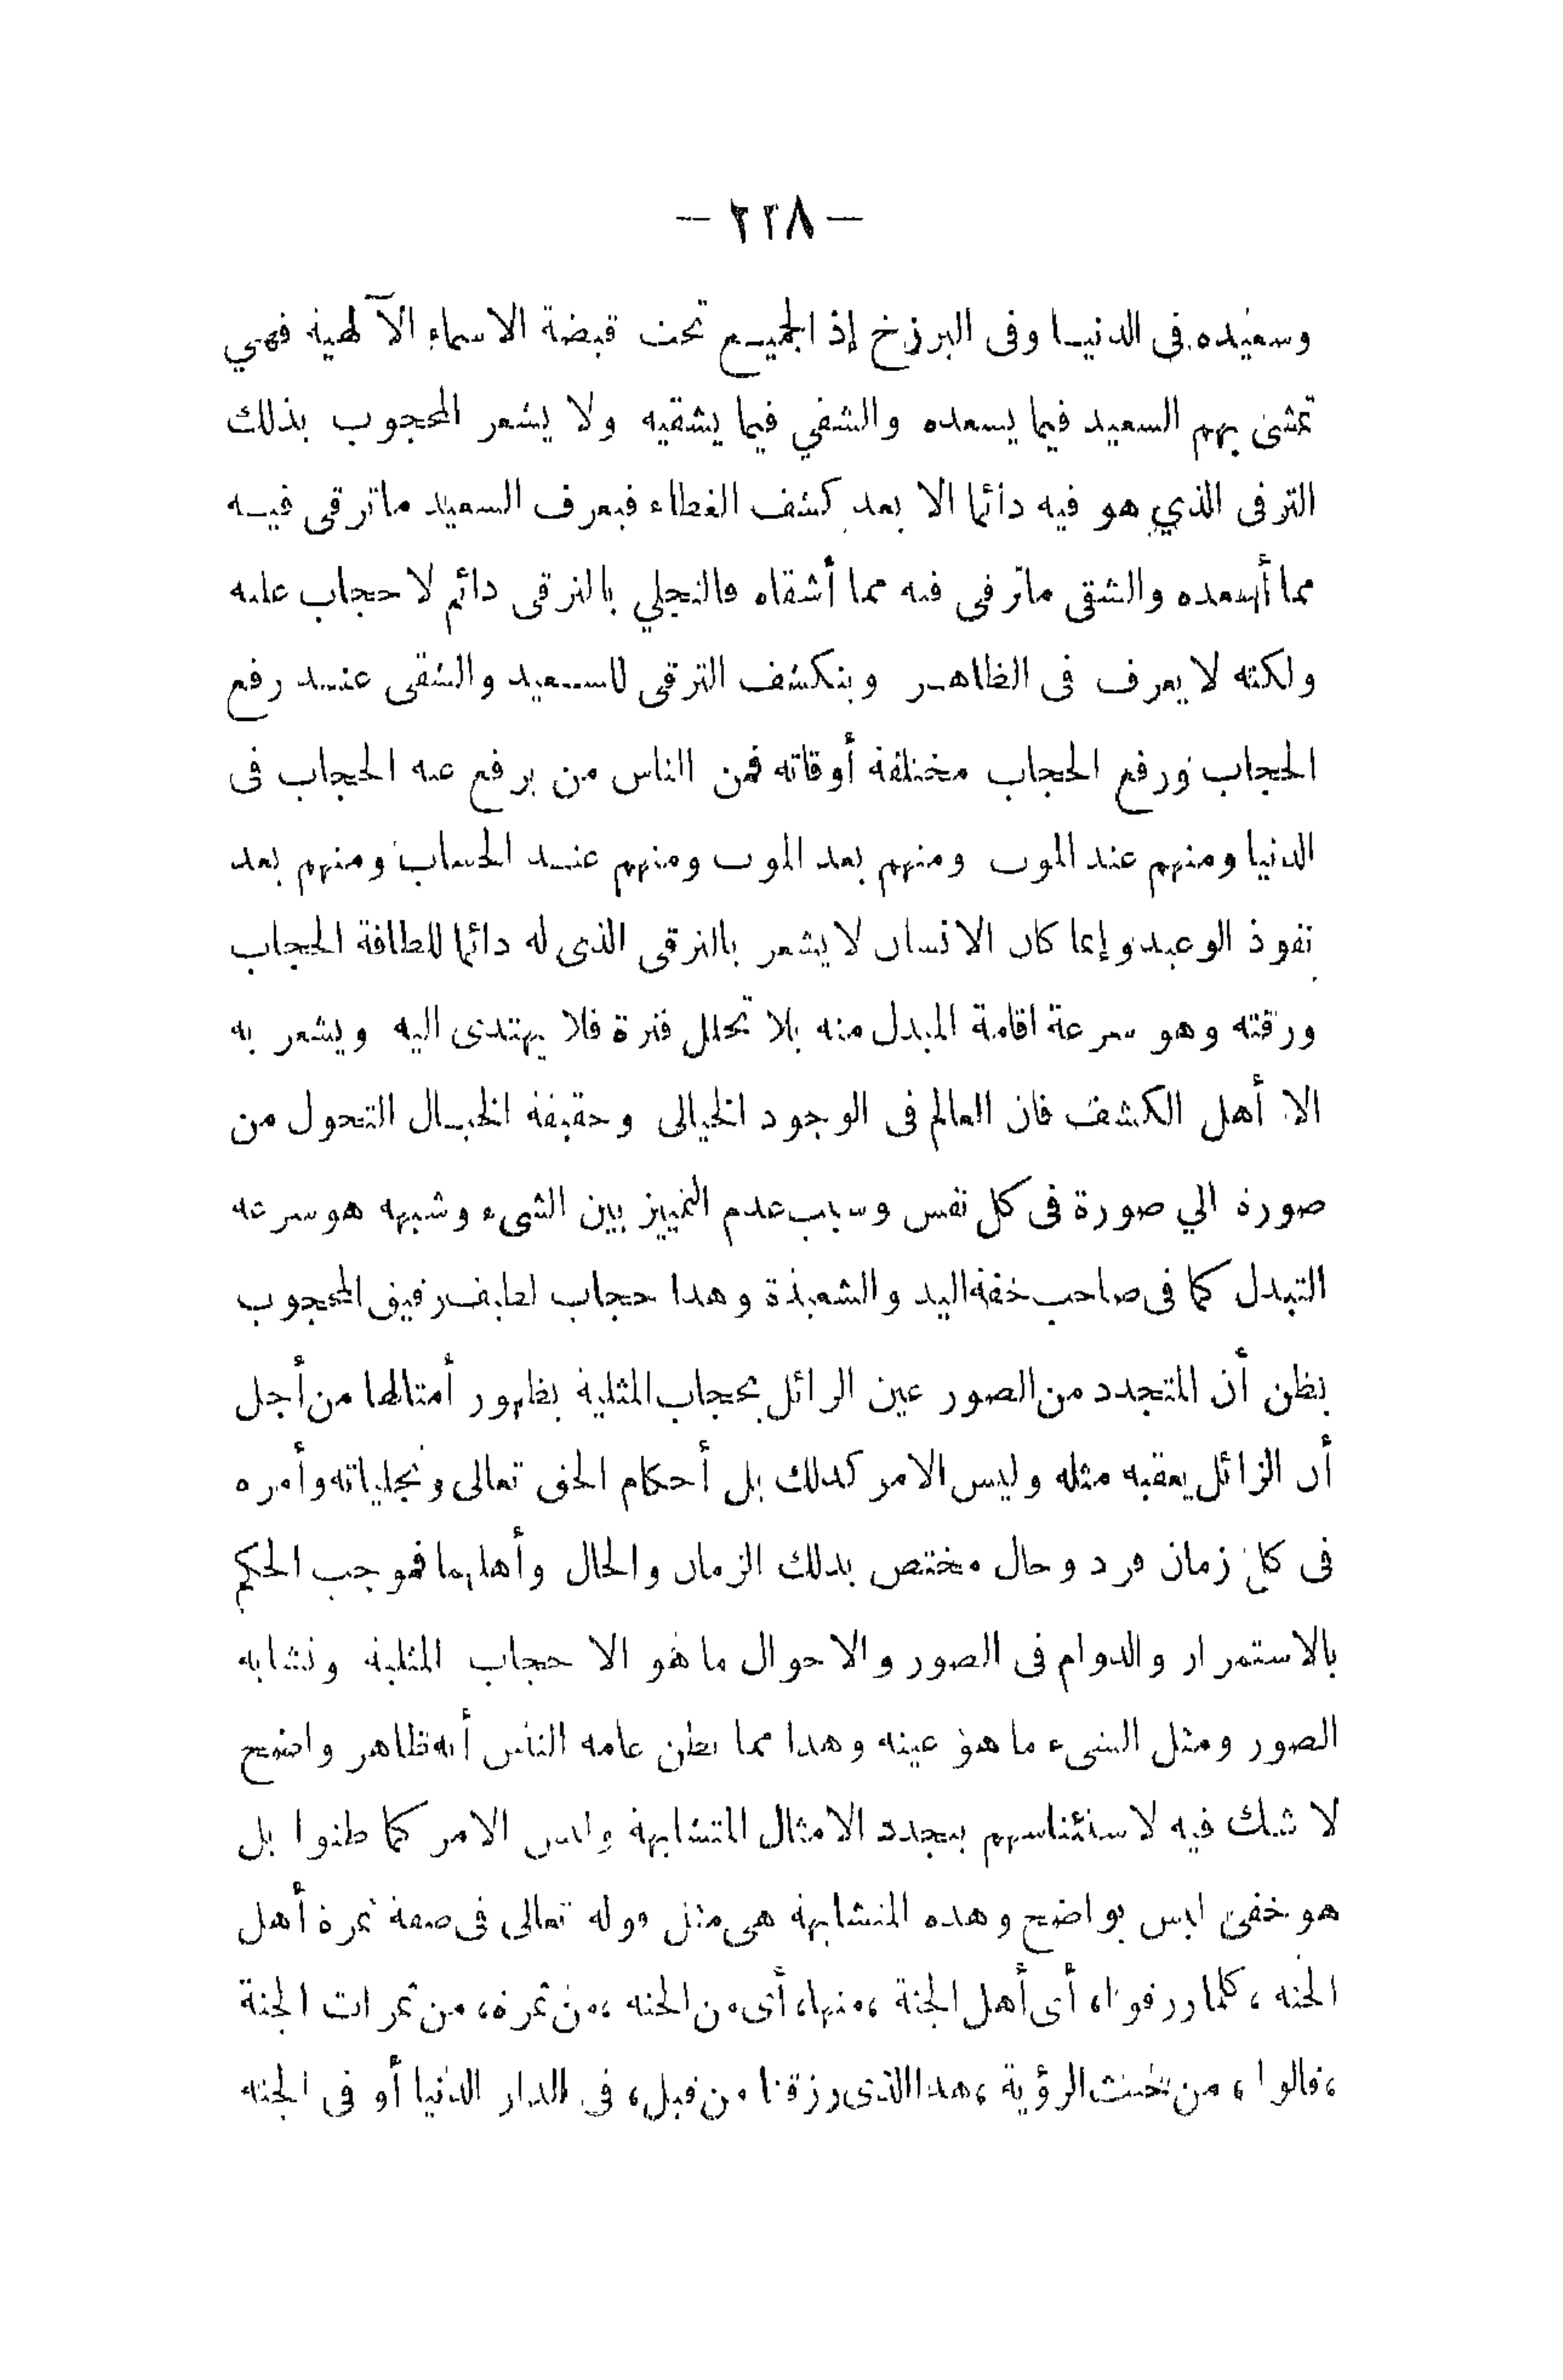 — ٢٢٨ —
وسعيده فى الدنيا وفى البرزخ إذ الجميع تحت قبضة الاسماء الآلهية فهي
تمشى بهم السعيد فيما يسعده والشقي فيما يشقيه ولا يشعر المحجوب بذلك
الترقى الذي هو فيه دائما الا بعد كشف الغطاء فيعرف السعيد ماترقى فيه
مما أسعده والشقى ماترقى فيه مما أشقاه فالتجلي بالترقى دائم لا حجاب عليه
ولكنه لا يعرف فى الظاهر وينكشف الترقى للسعيد والشقى عند رفع
الحجاب ورفع الحجاب مختلفة أوقاته فمن الناس من يرفع عنه الحجاب فى
الدنيا ومنهم عند الموت ومنهم بعد الموت ومنهم عند الحساب ومنهم بعد
نفوذ الوعيد وإنما كان الانسان لا يشعر بالترقى الذى له دائما للطافة الحجاب
ورقته وهو سرعة اقامة المبدل منه بلا تخلل فترة فلا يهتدى اليه ويشعر به
الا أهل الكشف فان العالم فى الوجود الخيالى وحقيقة الخيال التحول من
صورة الي صورة فى كل نفس وسبب عدم التمييز بين الشىء وشبهه هو سرعة
التبدل كما فى صاحب خفة اليد والشعبذة وهذا حجاب لطيف رقيق المحجوب
يظن أن المتجدد من الصور عين الزائل بحجاب المثلية بظهور أمثالها من أجل
أن الزائل يعقبه مثله وليس الامر كذلك بل أحكام الحق تعالى وتجلياته وأمره
فى كل زمان فرد وحال مختص بذلك الزمان والحال وأهلهما فموجب الحكم
بالاستمرار والدوام فى الصور والاحوال ما هو الا حجاب المثلية وتشابه
الصور ومثل الشىء ما هو عينه وهذا مما يظن عامة الناس أنه ظاهر واضح
لا شك فيه لاستئناسهم بتجدد الامثال المتشابهة وليس الامر كما ظنوا بل
هو خفى ليس بواضح وهذه المتشابهة هى مثل قوله تعالى فى صفة ثمرة أهل
الجنة ،كلما رزقوا، أى أهل الجنة ،منها، أى من الجنة ،من ثمرة، من ثمرات الجنة
،قالوا، من تحت الرؤية ،هذا الذى رزقنا من قبل، فى الدار الدنيا أو فى الجنة